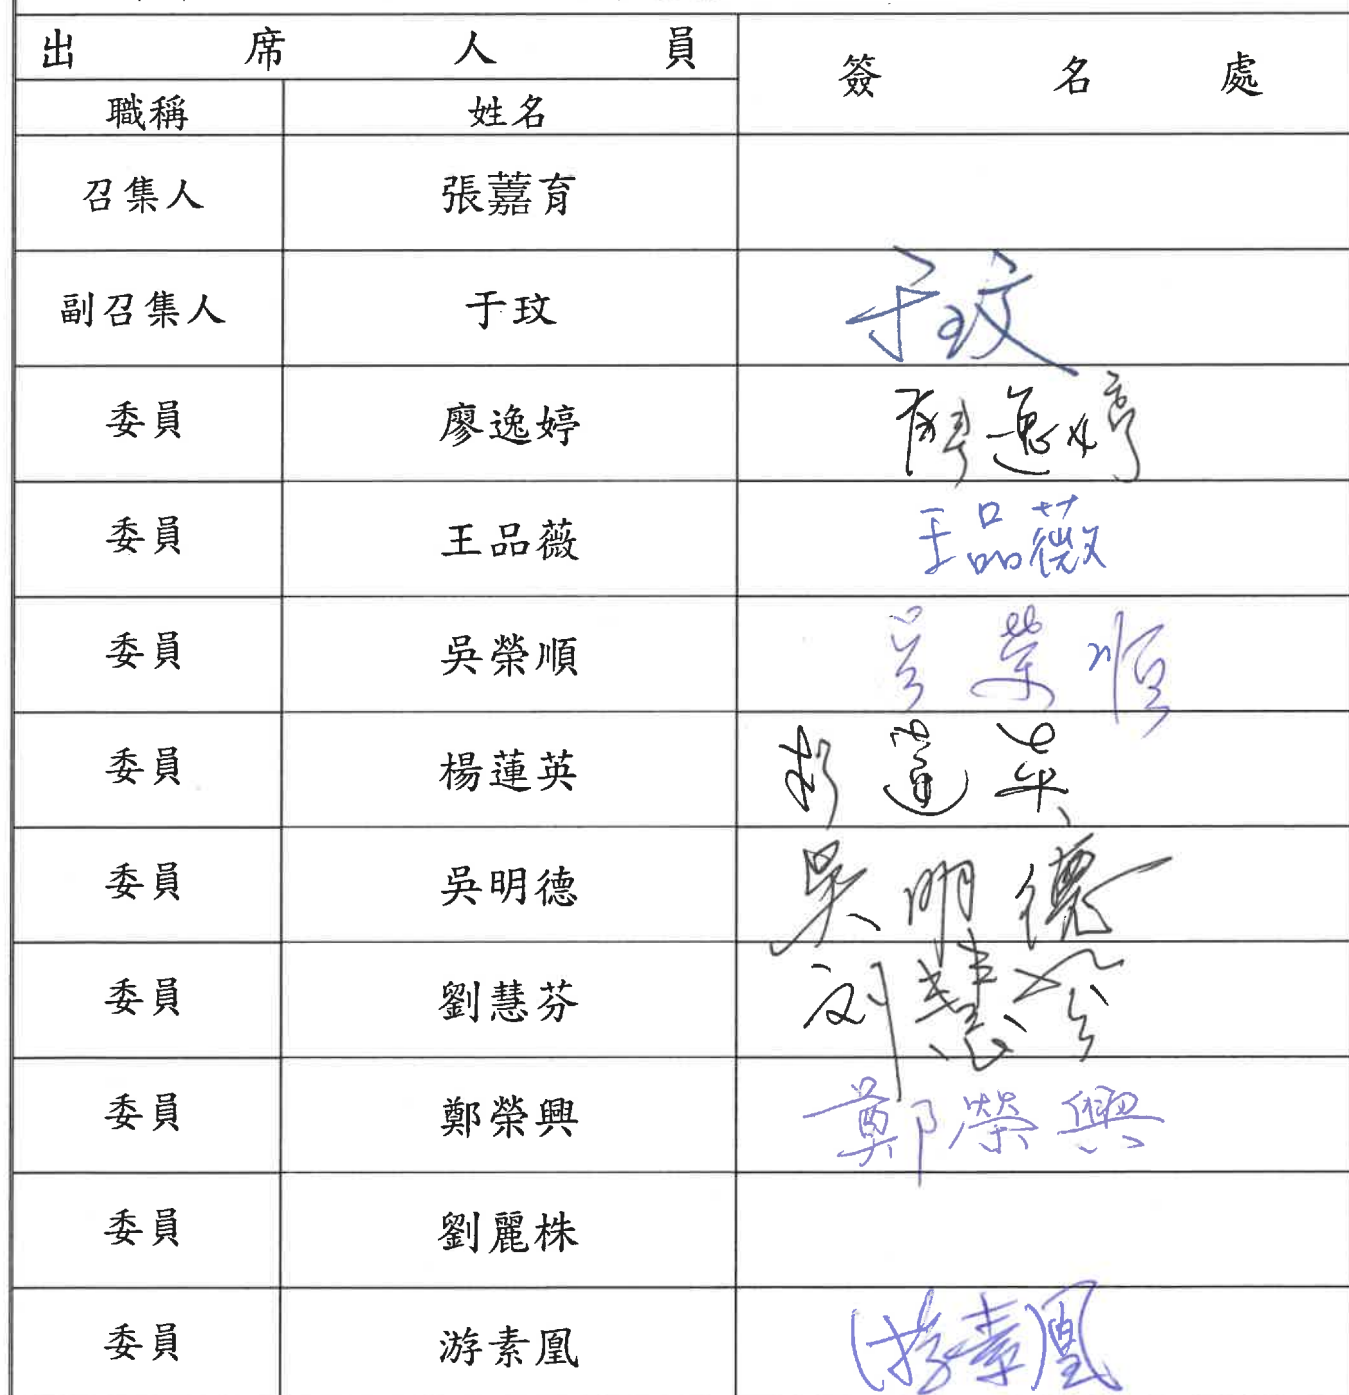 出席人員 簽名處
職稱 姓名
召集人 張嘉育
副召集人 于玟 于玟
委員 廖逸婷 廖逸婷
委員 王品薇 王品薇
委員 吳榮順 吳榮順
委員 楊蓮英 楊蓮英
委員 吳明德 吳明德
委員 劉慧芬 刘慧芬
委員 鄭榮興 鄭榮興
委員 劉麗株
委員 游素凰 游素凰